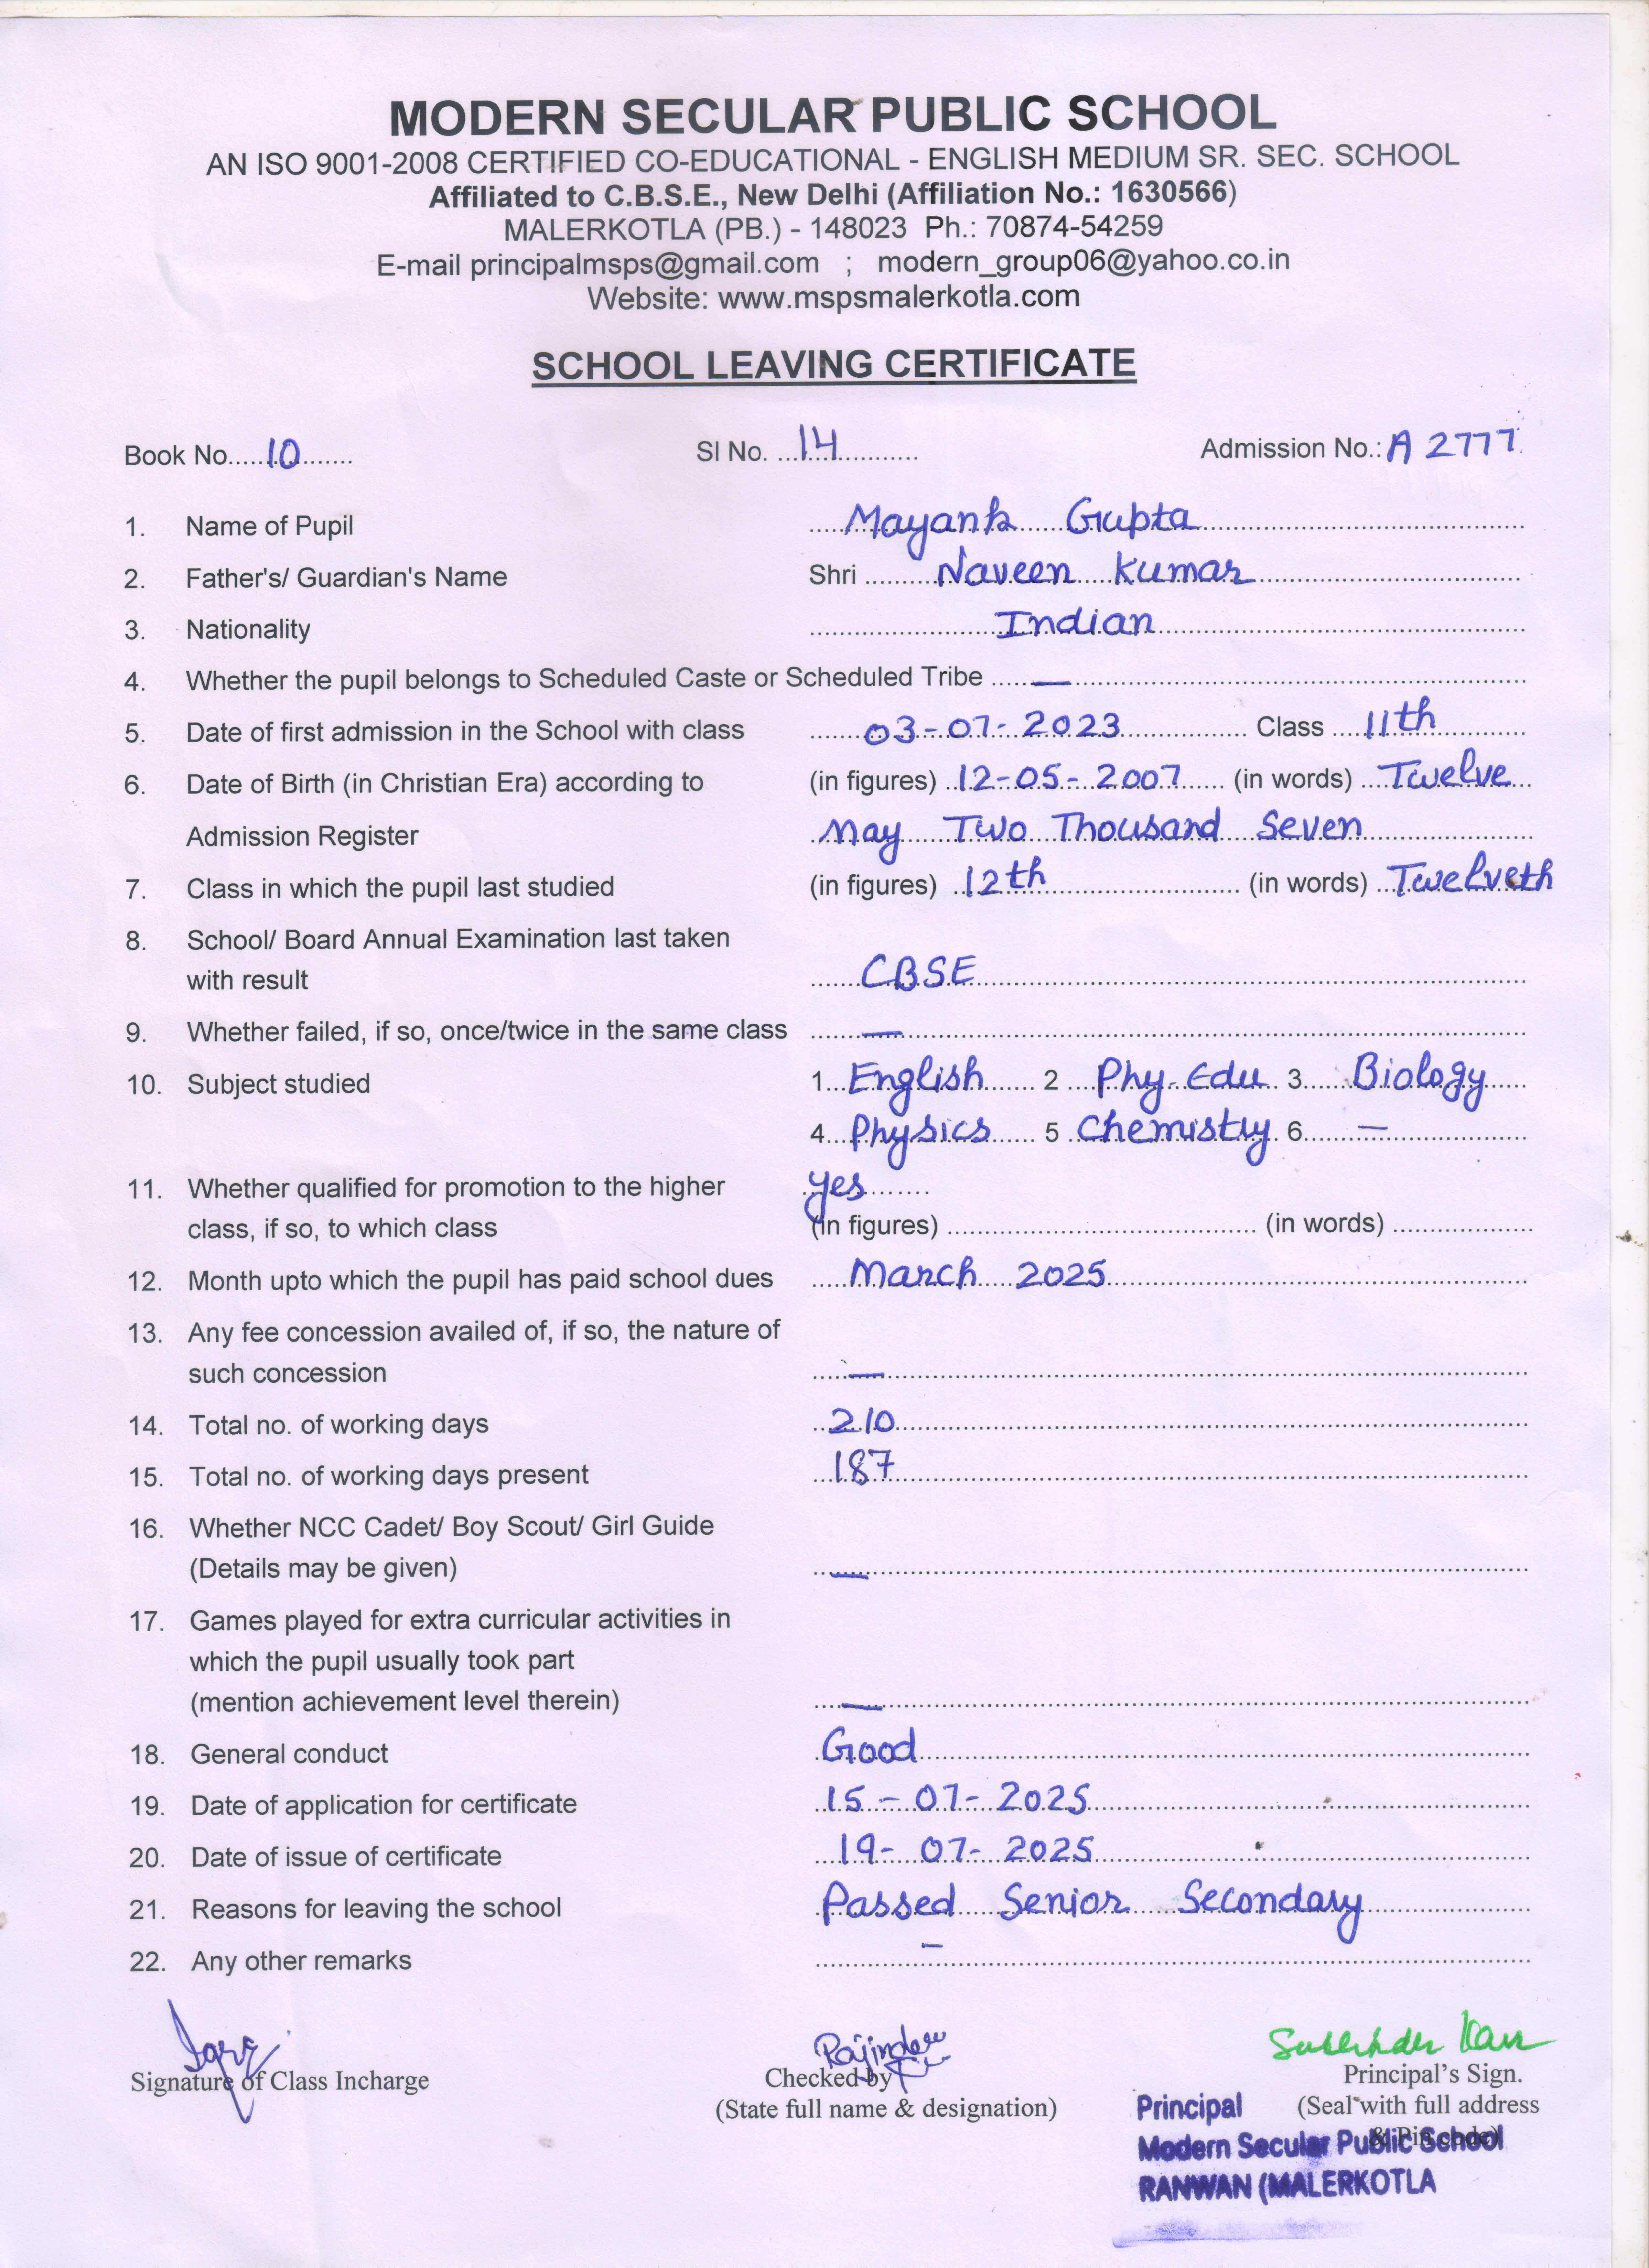 MODERN SECULAR PUBLIC SCHOOL
AN ISO 9001-2008 CERTIFIED CO-EDUCATIONAL - ENGLISH MEDIUM SR. SEC. SCHOOL
Affiliated to C.B.S.E., New Delhi (Affiliation No.: 1630566)
MALERKOTLA (PB.) - 148023 Ph.: 70874-54259
E-mail principalmsps@gmail.com ; modern_group06@yahoo.co.in
Website: www.mspsmalerkotla.com
SCHOOL LEAVING CERTIFICATE
Book No. 10 Sl No. 14 Admission No.: A 2777
1. Name of Pupil Mayank Gupta
2. Father's/ Guardian's Name Shri Naveen Kumar
3. Nationality Indian
4. Whether the pupil belongs to Scheduled Caste or Scheduled Tribe —
5. Date of first admission in the School with class 03-07-2023 Class 11th
6. Date of Birth (in Christian Era) according to (in figures) 12-05-2007 (in words) Twelve
Admission Register May Two Thousand Seven
7. Class in which the pupil last studied (in figures) 12th (in words) Twelveth
8. School/ Board Annual Examination last taken
with result CBSE
9. Whether failed, if so, once/twice in the same class —
10. Subject studied 1. English 2 Phy. Edu 3. Biology
4. Physics 5 Chemistry 6. —
11. Whether qualified for promotion to the higher yes
class, if so, to which class (in figures) (in words)
12. Month upto which the pupil has paid school dues March 2025
13. Any fee concession availed of, if so, the nature of
such concession —
14. Total no. of working days 210
15. Total no. of working days present 187
16. Whether NCC Cadet/ Boy Scout/ Girl Guide
(Details may be given) —
17. Games played for extra curricular activities in
which the pupil usually took part
(mention achievement level therein) —
18. General conduct Good
19. Date of application for certificate 15-07-2025
20. Date of issue of certificate 19-07-2025
21. Reasons for leaving the school Passed Senior Secondary
22. Any other remarks —
Rajinder
Signature of Class Incharge Checked by Principal's Sign.
(State full name & designation) (Seal with full address
& Pin code)
Principal
Modern Secular Public School
RANWAN (MALERKOTLA